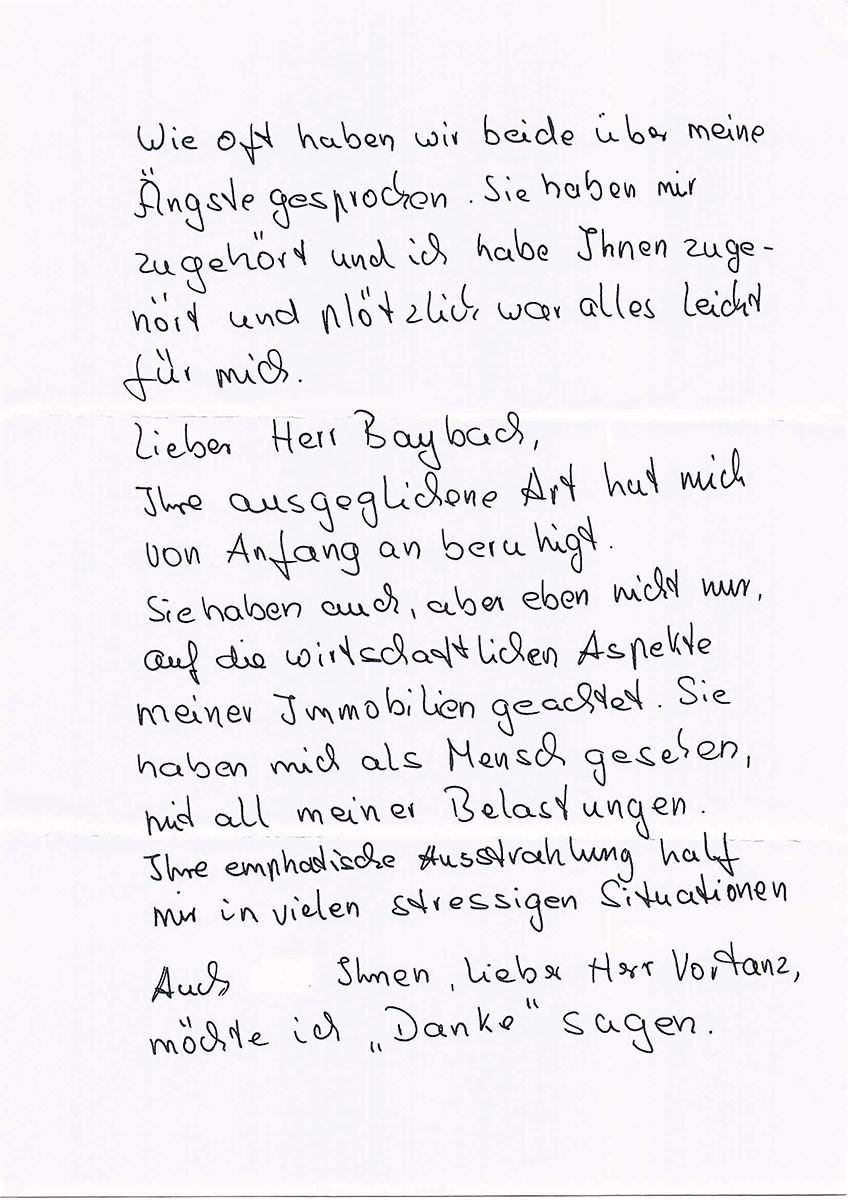 Wie oft haben wir beide über meine
Ängste gesprochen. Sie haben mir
zugehört und ich habe Ihnen zuge-
hört und plötzlich war alles leicht
für mich.
Lieber Herr Baybach,
Ihre ausgeglichene Art hat mich
von Anfang an beruhigt.
Sie haben auch, aber eben nicht nur,
auf die wirtschaftlichen Aspekte
meiner Immobilien geachtet. Sie
haben mich als Mensch gesehen,
mit all meiner Belastungen.
Ihre emphatische Ausstrahlung half
mir in vielen stressigen Situationen
Auch Ihnen, lieber Herr Vortanz,
möchte ich „Danke" sagen.